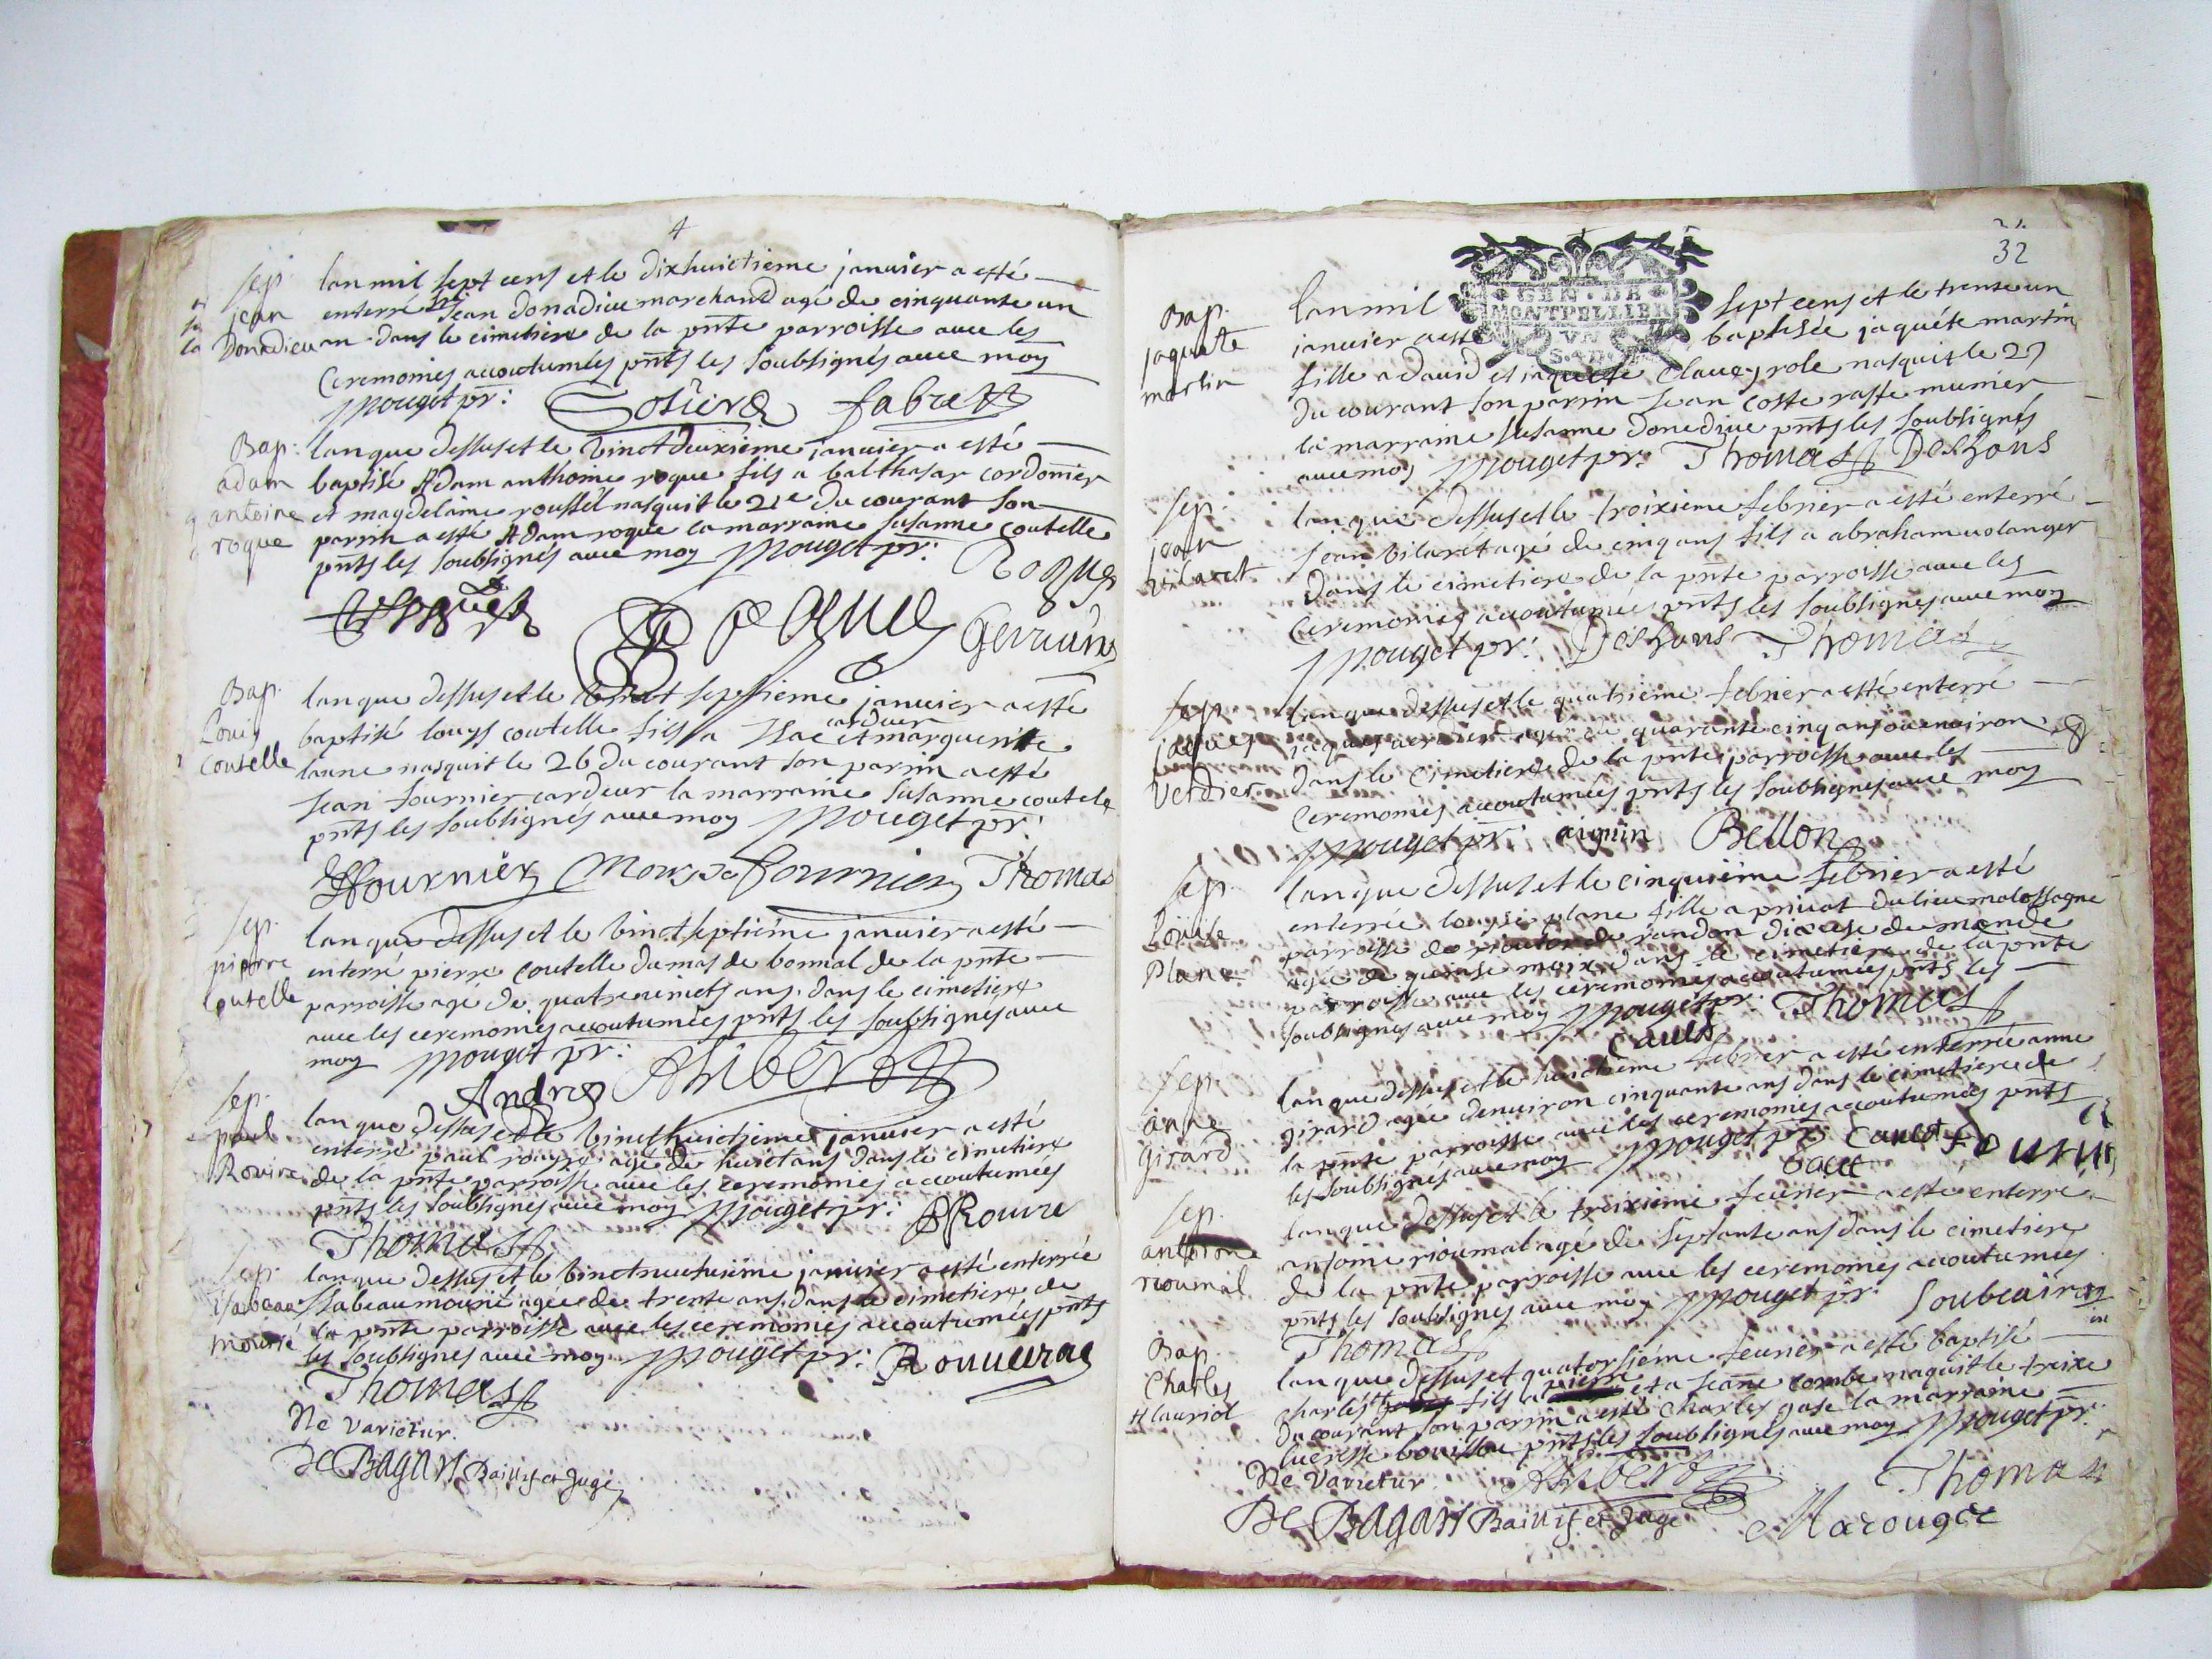 4
Sep. lan mil sept cens et le dixhuictieme januier a esté
jean enterré Sr Jean Donadieu marchand agé de cinquante un
Donadieu an dans le cimetiere de la pnte parroisse auec les
Ceremonies accoutumées pnts les soubsignés auec moy
Pouget pr:
Bap. lan que dessus et le vinct deuxieme januier a esté
adam baptisé Adam anthoine roque fils a balthasar cordonier
antoine et magdelaine roussel nasquit le 21e du courant son
roque parrin a esté Adam roque la marraine susanne coutelle
pnts les soubsignés auec moy Pouget pr:
Bap. lan que dessus et le vinct septieme januier a esté
Louis baptisé louys coutelle fils a Isac cardeur et marguerite
Coutelle laune nasquit le 26 du courant son parrin a esté
Jean fournier cardeur la marraine susanne coutele
pnts les soubsignés auec moy Pouget pr:
Fournier fournier Thomas
Sep. lan que dessus et le vinct septieme januier a esté
pierre enterré pierre Coutelle du mas de bonnal de la pnte
Coutelle parroisse agé de quatre vincts ans dans le cimetiere
auec les ceremonies accoutumées pnts les soubsignés auec
moy Pouget pr:
Sep. lan que dessus et le vincthuictieme januier a esté
paul enterré paul rouyre agé de huict ans dans le cimetiere
Rouire de la pnte parroisse auec les ceremonies accoutumées
pnts les soubsignés auec moy Pouget pr: Rouire
Thomas
Sep. lan que dessus et le vincthuictieme januier a esté enterrée
isabeau Isabeau mourié agée de trente ans dans le cimetiere de
mourié la pnte parroisse auec les ceremonies accoutumées pnts
les soubsignés auec moy Pouget pr:
Thomas
Ne Varietur.
De Bagars Baillif et Juge
32
GEN. DE
MONTPELLIER
VN
S. 4 D.
Bap. lan mil sept cens et le trente un
jaquete januier a esté baptisée jaquéte martin
martin fille a Dauid et jaquete Claueyrole nasquit le 27
du courant son parrin Jean Coste rasse munier
la marraine susanne donediue pnts les soubsignés
auec moy Pouget pr: Thomas Deshons
Sep. lan que dessus et le troixieme febrier a esté enterré
jean Jean vilarét agé de cinq ans fils a abraham
vilaret dans le cimetiere de la pnte parroisse auec les
Ceremonies accoutumées pnts les soubsignés auec moy
Pouget pr: Deshons Thomas
Sep. lan que dessus et le quatrieme febrier a esté enterré
jaques jaques verdier agé de quarante cinq ans ou enuiron
Verdier dans le Cimetiere de la pnte parroisse auec les
Ceremonies accoutumées pnts les soubsignés auec moy
Pouget pr: aiguin Bellon
Sep. lan que dessus et le cinquiéme febrier a esté
Louise enterrée louyse plane fille a priuat du lieu
Plane parroisse de de randon diocese de mande
agée de quinse moix dans le cimetiere de la pnte
parroisse auec les ceremonies accoutumées pnts les
soubsignés auec moy Pouget pr: Thomas
Sep. lan que dessus et le huictieme febrier a esté enterrée anne
anne girard agée denuiron cinquante ans dans le cimetiere de
girard la pnte parroisse auec les ceremonies accoutumées pnts
les soubsignés auec moy Pouget pr:
Sep. lan que dessus et le treixieme feurier a esté enterré
anthoine antoine rioumal agé de septante ans dans le cimetiere
rioumal de la pnte parroisse auec les ceremonies accoutumées
pnts les soubsignés auec moy Pouget pr: Soubeiran
Thomas
Bap. lan que dessus et quatorsiéme feurier a esté baptisé
Charles charles fils a pierre et a Jeane combe naquit le treixe
Hauriol du courant son parrin a esté Charles gase la marraine
lucresse bouissou pnts les soubsignés auec moy Pouget pr.
Thomas
Ne Varietur
De Bagars Baillif et Juge